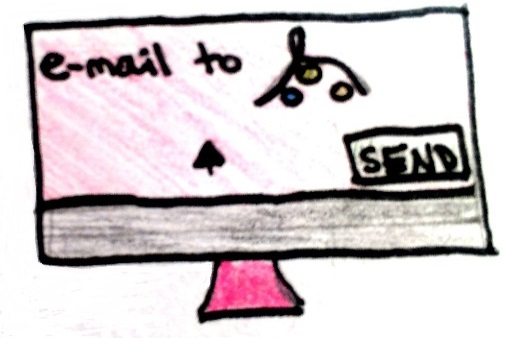 e-mail to
SEND